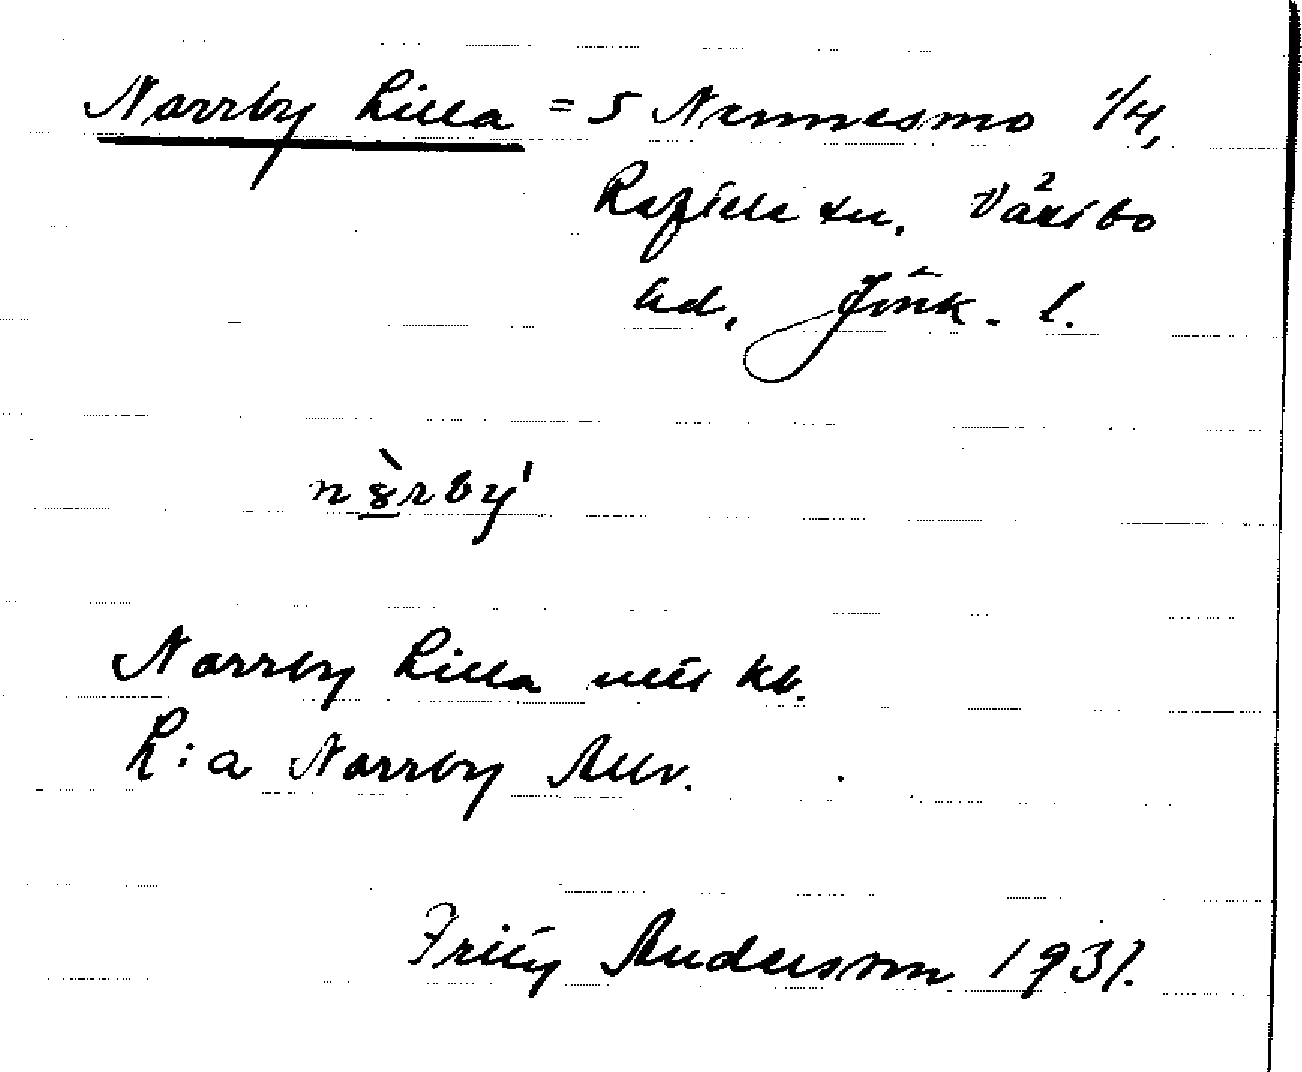 Norrby Lilla = 5 Nennesmo 1/4,
Reftele sn. Västbo
hd, Jönk. l.
nòrby'
Norrby Lilla utt kb.
L:a Norrby Allv.
Fritz Andersson 1931.